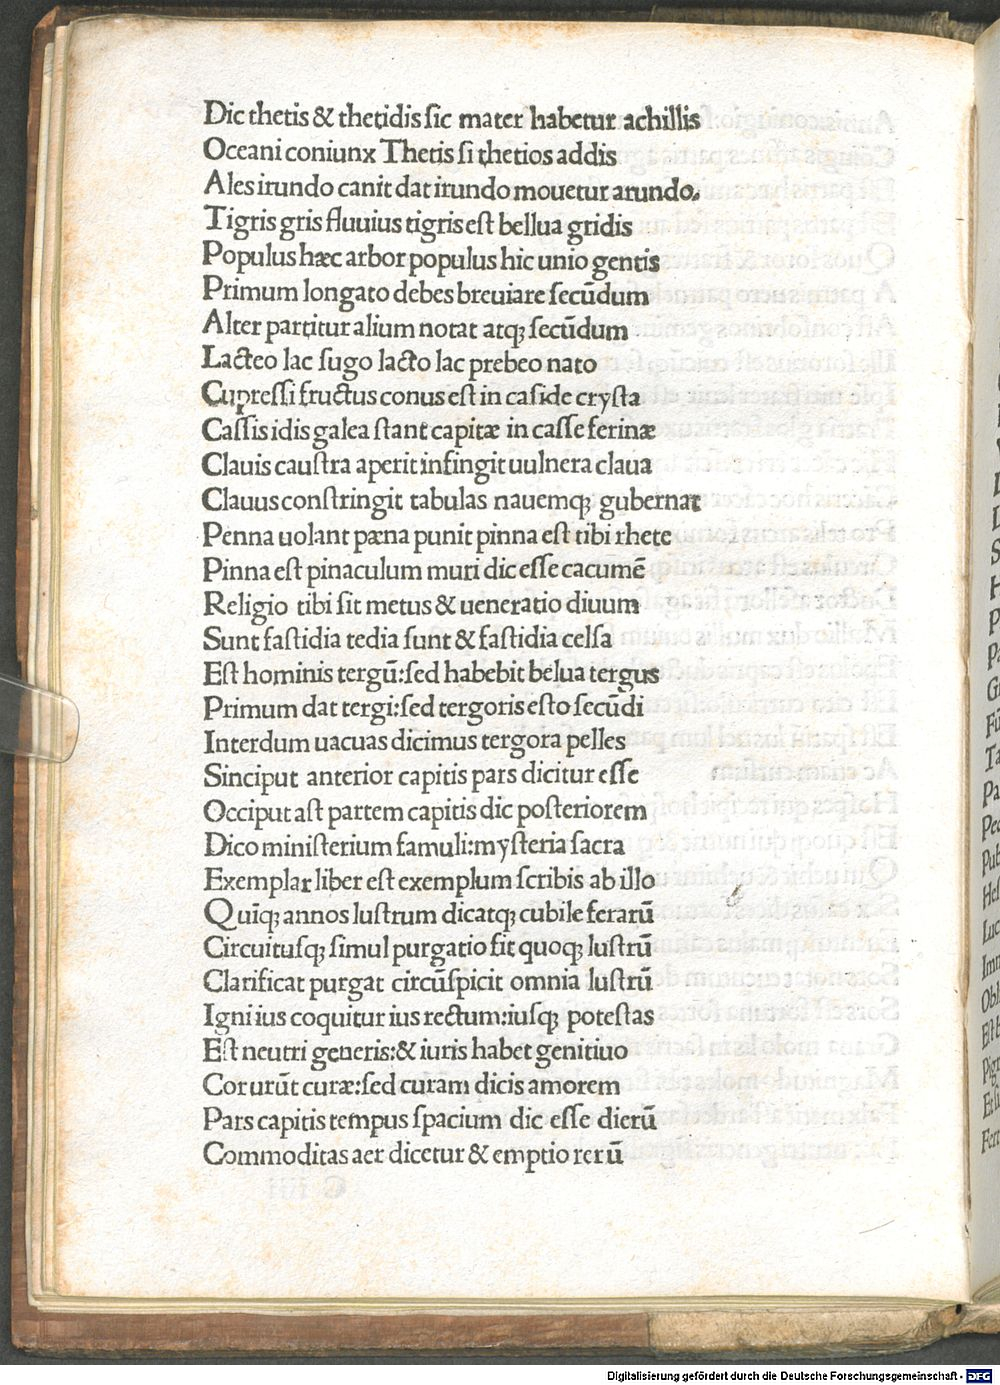 Dic thetis & thetidis sic mater habetur achillis
Oceani coniunx Thetis si thetios addis
Ales irundo canit dat irundo mouetur arundo.
Tigris gris fluuius tigris est bellua gridis
Populus hæc arbor populus hic unio gentis
Primum longato debes breuiare secūdum
Alter partitur alium notat atqꝫ secūdum
Lacteo lac sugo lacto lac prebeo nato
Cupressi fructus conus est in caside crysta
Cassis idis galea stant capitæ in casse ferinæ
Clauis caustra aperit infingit uulnera claua
Clauus constringit tabulas nauemqꝫ gubernat
Penna uolant pæna punit pinna est tibi rhete
Pinna est pinaculum muri dic esse cacumē
Religio tibi sit metus & ueneratio diuum
Sunt fastidia tedia sunt & fastidia celsa
Est hominis tergū:sed habebit belua tergus
Primum dat tergi:sed tergoris esto secūdi
Interdum uacuas dicimus tergora pelles
Sinciput anterior capitis pars dicitur esse
Occiput ast partem capitis dic posteriorem
Dico ministerium famuli:mysteria sacra
Exemplar liber est exemplum scribis ab illo
Quīqꝫ annos lustrum dicatqꝫ cubile ferarū
Circuitusqꝫ simul purgatio sit quoqꝫ lustrū
Clarificat purgat circūspicit omnia lustrū
Igni ius coquitur ius rectum:iusqꝫ potestas
Est neutri generis:& iuris habet genitiuo
Cor urūt curæ:sed curam dicis amorem
Pars capitis tempus spacium dic esse dierū
Commoditas aer dicetur & emptio rerū
Digitalisierung gefördert durch die Deutsche Forschungsgemeinschaft - DFG